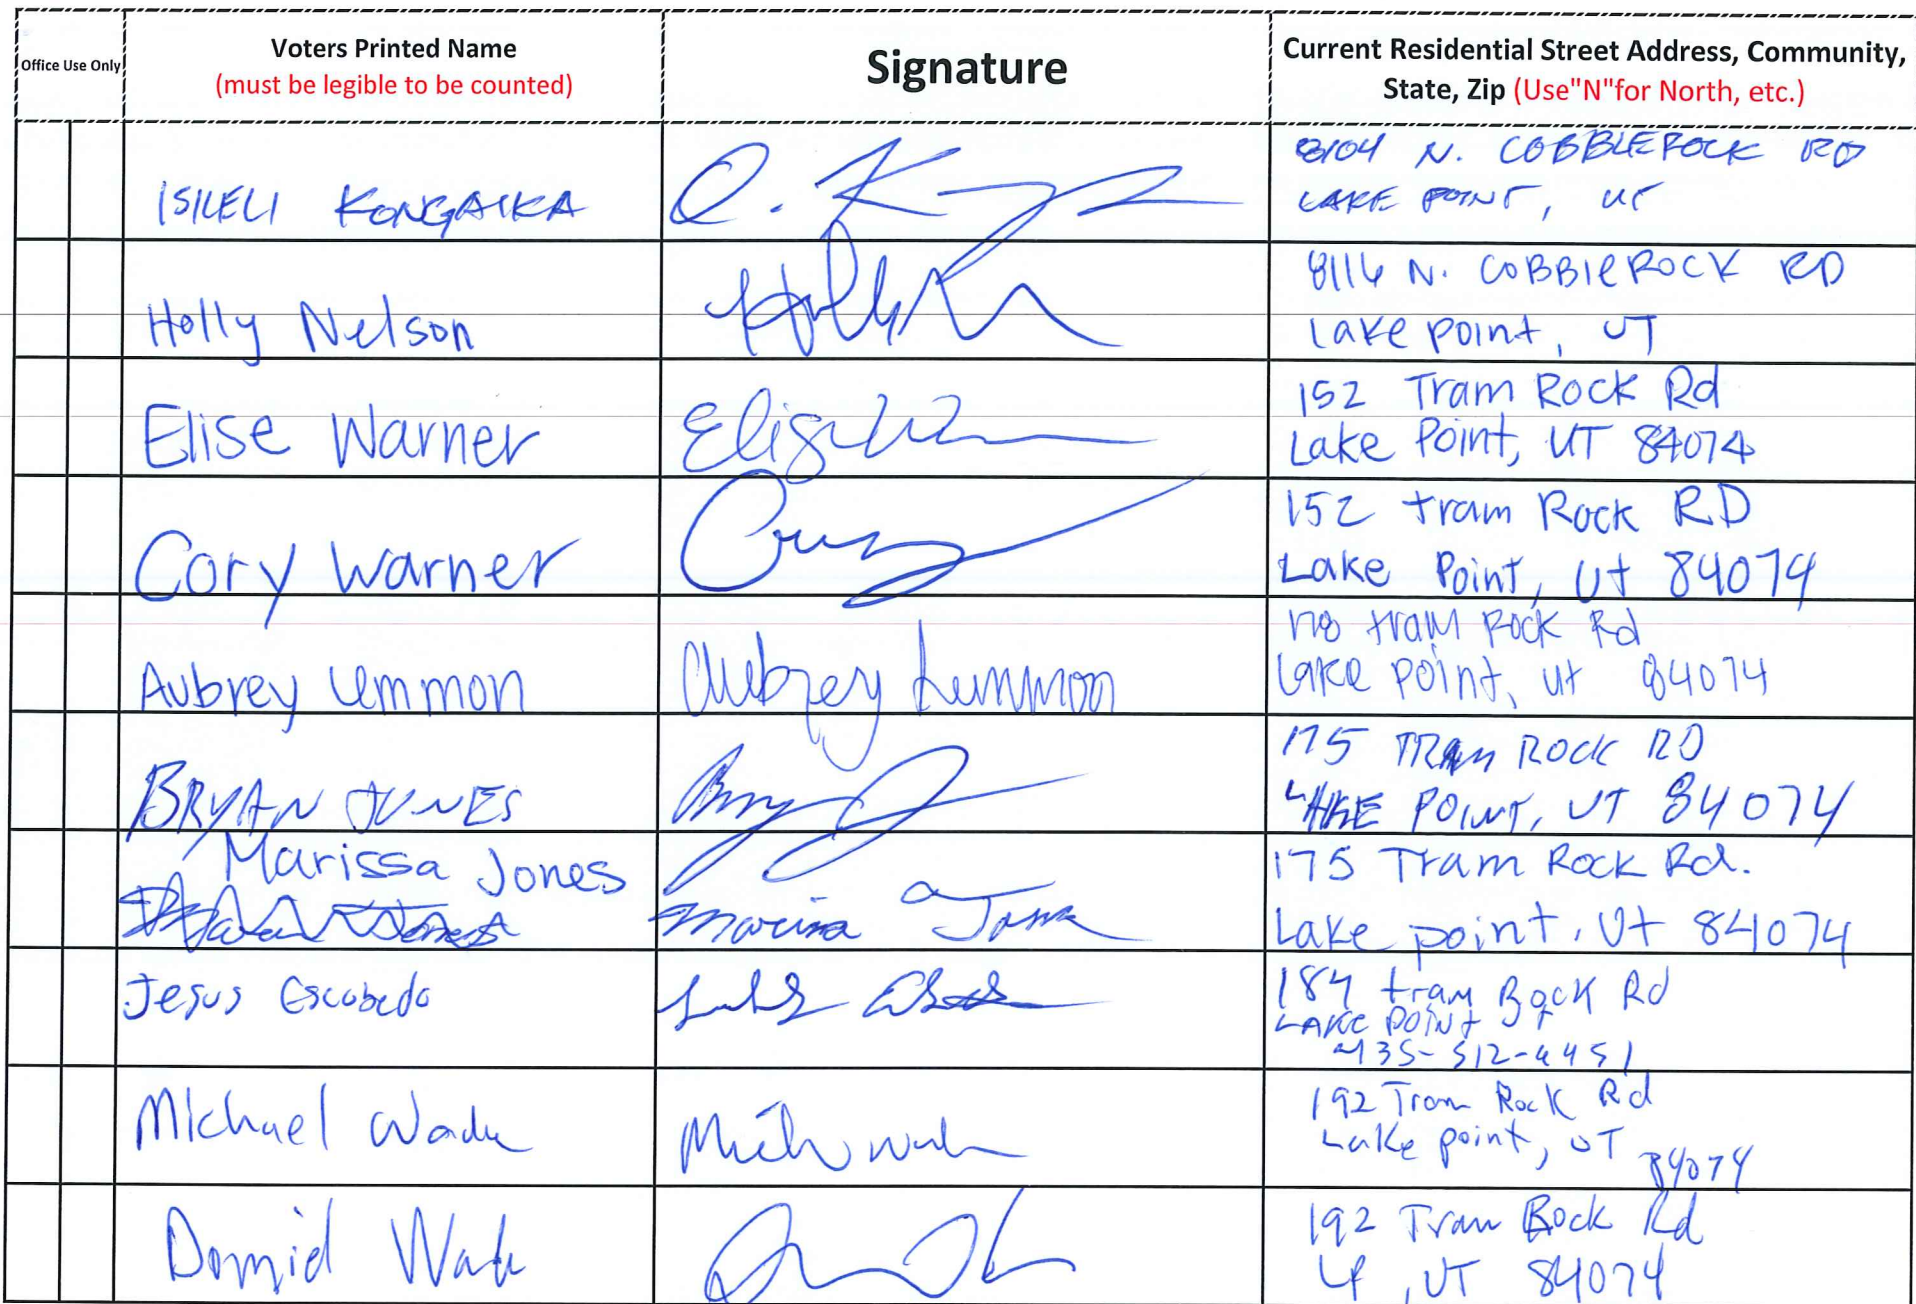 Office Use Only
Voters Printed Name
(must be legible to be counted)
Signature
Current Residential Street Address, Community,
State, Zip (Use"N"for North, etc.)
ISILELI KONGAIKA
8104 N. COBBLEROCK RD
LAKE POINT, UT
Holly Nelson
8116 N. COBBlEROCK RD
Lake point, UT
Elise Warner
Elise
152 Tram Rock Rd
Lake Point, UT 84074
Cory Warner
152 tram Rock RD
Lake Point, Ut 84074
Aubrey Lemmon
Aubrey Lemmon
178 tram Rock Rd
Lake point, ut 84074
BRYAN JONES
175 TRAM ROCK RD
LAKE POINT, UT 84074
Marissa Jones
Marissa Jones
175 Tram Rock Rd.
Lake point, Ut 84074
Jesus Escobedo
184 tram Rock Rd
LAKE POINT
435-512-4451
Michael Wade
192 Tram Rock Rd
Lake point, UT
84074
Wade
192 Tram Rock Rd
LP, UT 84074